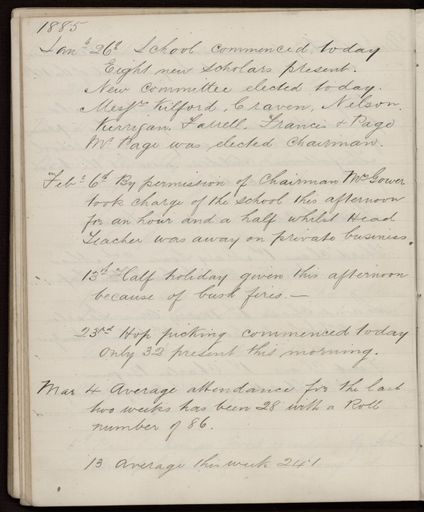 1885
Jany 26th School commenced today
Eight new scholars present.
New Committee elected today.
Messrs Kilford, Craven, Nelson,
Kerrijan, Farrell, Francis & Page
Mr Page was elected Chairman.
Feby 6th By permission of Chairman Mrs Gower
took charge of the school this afternoon
for an hour and a half whilst Head
Teacher was away on private business.
13th Half holiday given this afternoon
because of bush fires.—
23rd Hop picking commenced today
Only 32 present this morning.
Mar 4 Average attendance for the last
two weeks has been 28 with a Roll
number of 86.
13 average this week 24.1